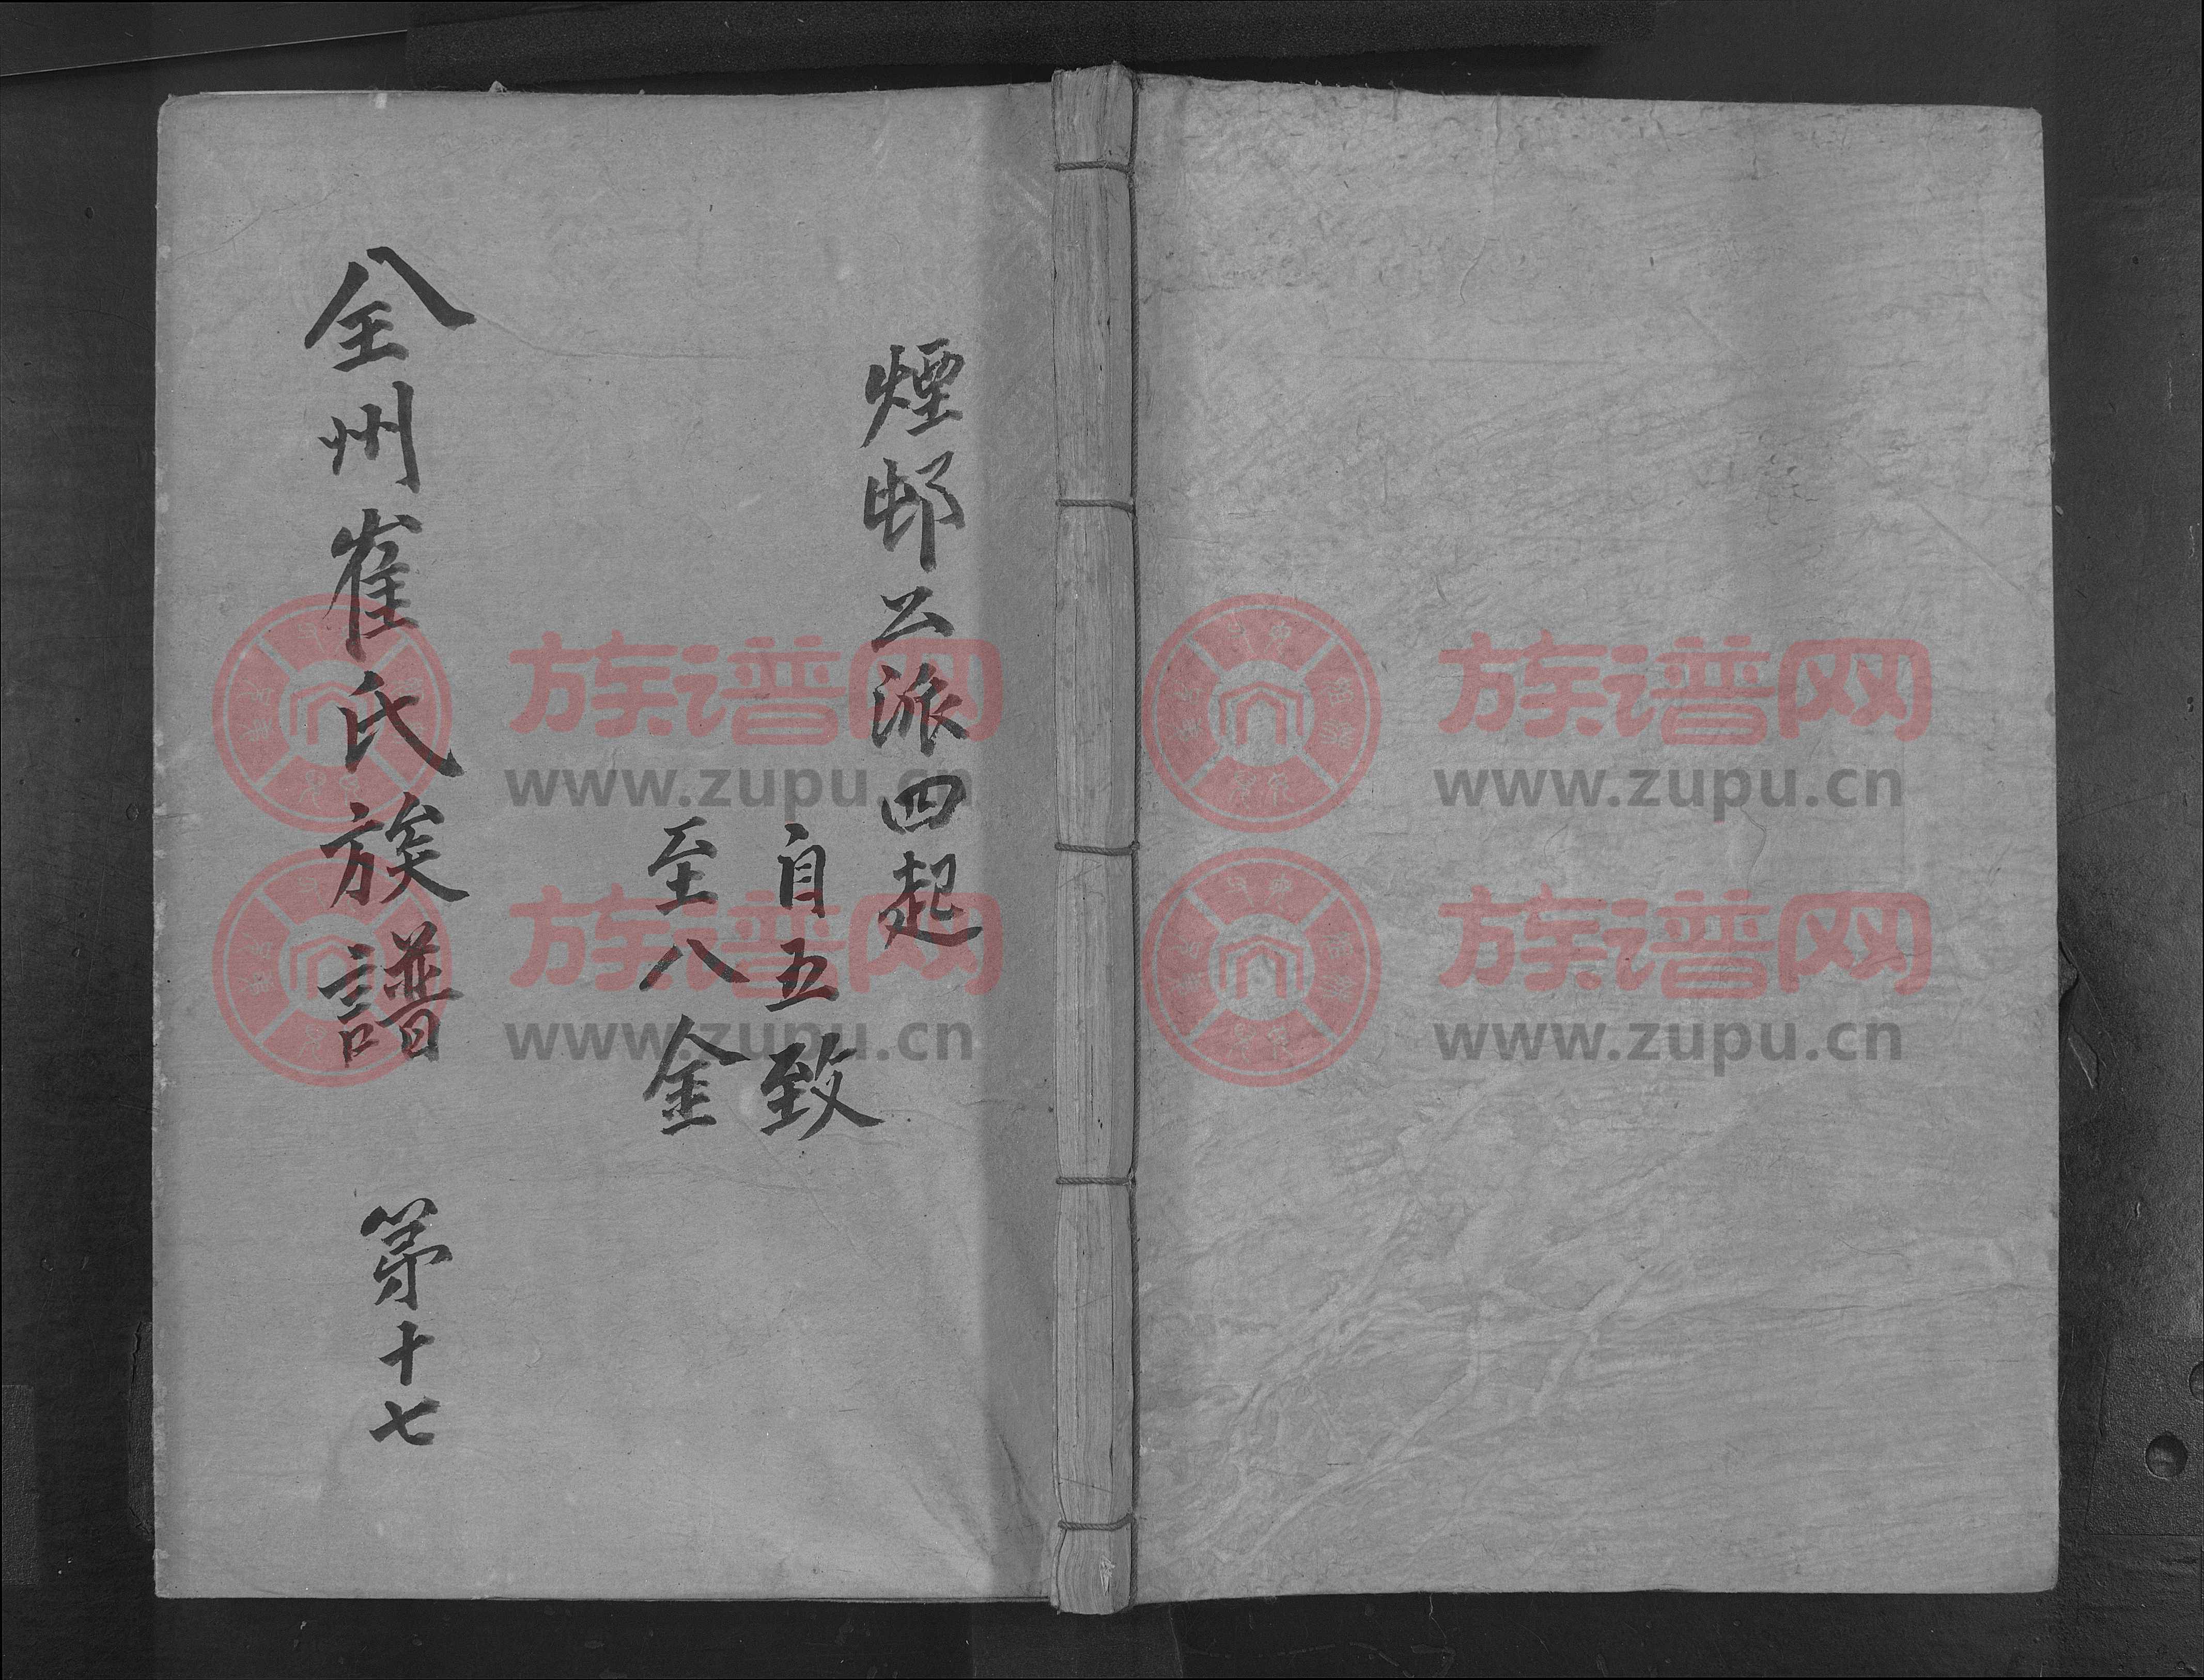 煙邨公派四起
自五致
至八金
全州崔氏族譜 第十七
族谱网
www.zupu.cn
族谱网
www.zupu.cn
族谱网
www.zupu.cn
族谱网
www.zupu.cn